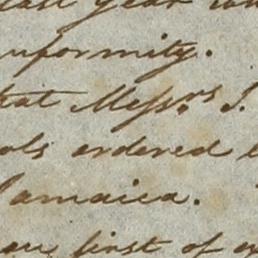 last year
nformity.
that Messrs. J.
ols ordered
Jamaica.
are first of